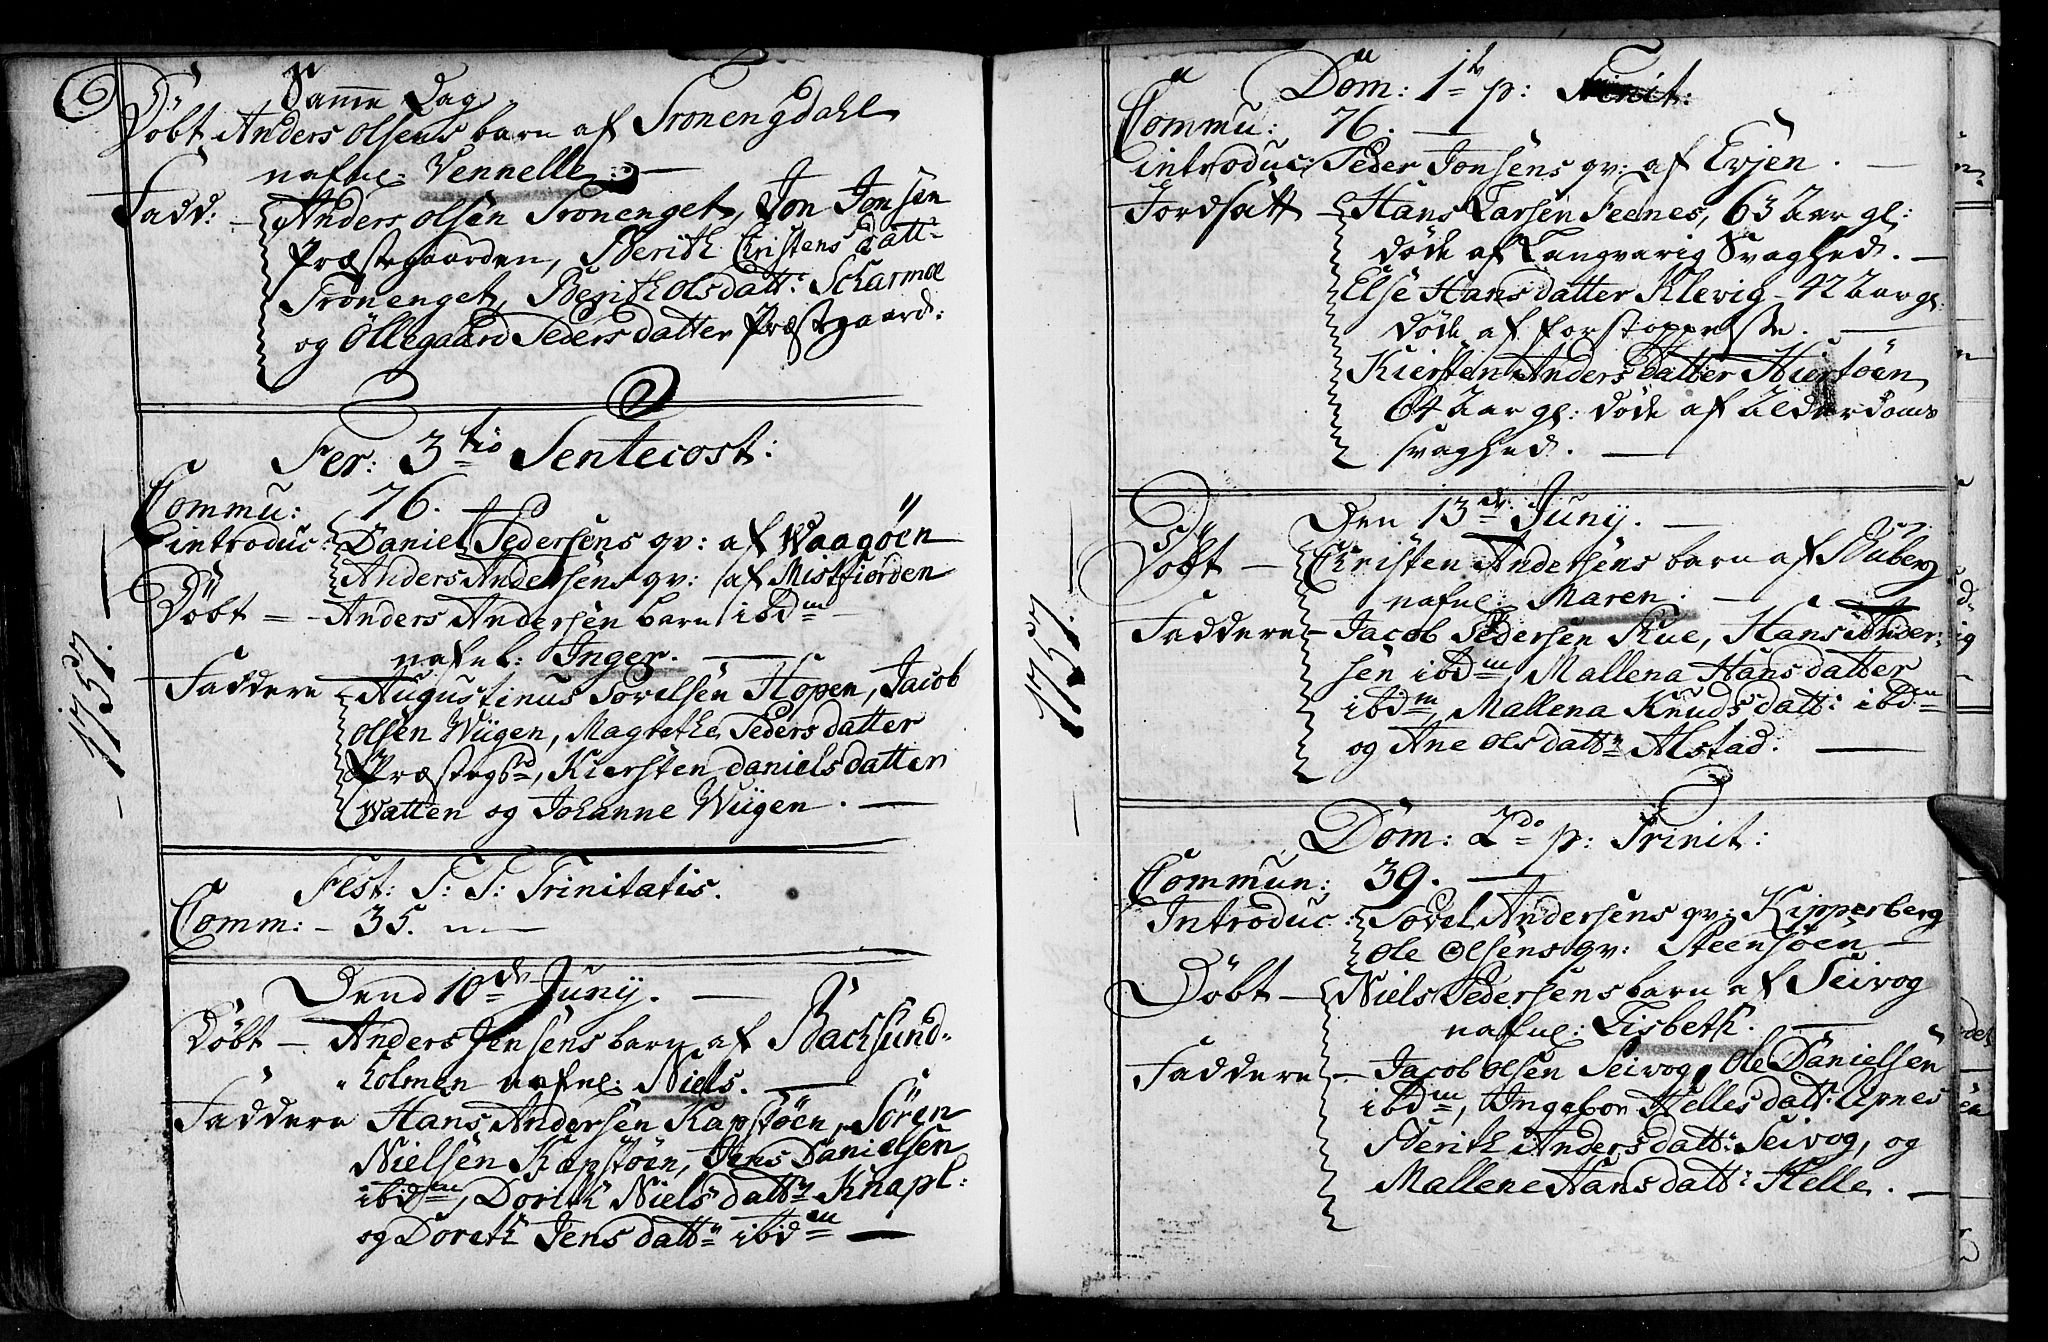 Samme Dag
Døbt Anders Olsens barn af Tronengdahl
nafnl: Vennelle.
Fadd: Anders Olsen Tronenget, Jon Jonsen
Præstegaarden, Berith Christensdatt:
Tronenget, Berith Olsdatt: Scharmoe
og Øllegaard Pedersdatter Præstegaard:
Fer: 3tio Pentecost:
Commu: 76.
introduc: Daniel Pedersens qv: af Waagøen
Anders Andersens qv: af Mistfiorden
Døbt – Anders Andersen barn ibdm
nafnl: Inger.
Faddere Augustinus Tovelsen Hopen, Jacob
Olsen Wiigen, Magrethe Pedersdatter
Præstegrd, Kiersten Danielsdatter
Watten og Johanne Wiigen.
1757.
Fest: S: S: Trinitatis.
Comm: – 35.
Dend 10de Juny.
Døbt – Anders Jensens barn af Backsund-
Kolmen nafnl: Niels.
Faddere Hans Andersen Kapstøen, Søren
Nielsen Kapstøen, Jens Danielsen
ibidm, Dorith Nielsdattr Knapl:
og Doreth Jensdattr ibidm
Dom: 1ma p: Trinit:
Commu: 76.
introduc: Peder Jonsens qv: af Evjen.
Jordsatt – Hans Larsen Feenes, 63 Aar gl:
døde af Langvarig Svaghed.
Else Hansdatter Klevig – 42 Aar gl:
døde af forstoppelse.
Kiersten Andersdatter Hiertøen
64 Aar gl: døde af Alderdoms
svaghed.
Den 13de Juny.
Døbt – Christen Andersens barn af Buberg
nafnl: Maren.
Faddere – Jacob Pedersen Rue, Hans Ander-
sen ibdm, Mallena Hansdatter
ibdm, Mallena Knudsdatt: ibdm
og Ane Olsdattr Alstad.
1757.
Dom: 2do p: Trinit:
Commun: 39.
Introduc: Tovel Andersens qv: Kipperberg
Ole Olsens qv: Steensøen
Døbt – Niels Pedersens barn af Seivog
nafnl: Lisbeth.
Faddere – Jacob Olsen Seivog, Ole Danielsen
ibdm, Ingebor Hellesdatt: Apnes
Berith Andersdatt: Seivog, og
Mallene Hansdatt: Helle.